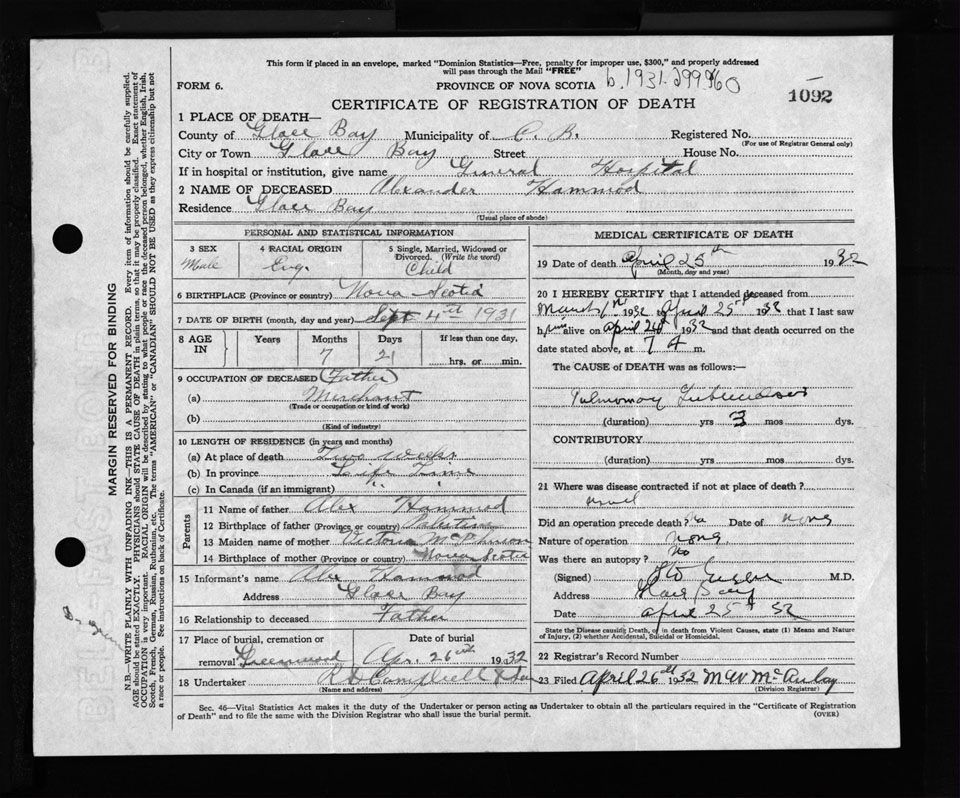 This form if placed in an envelope, marked "Dominion Statistics—Free, penalty for improper use, $300," and properly addressed
will pass through the Mail "FREE"
FORM 6. PROVINCE OF NOVA SCOTIA b.1931-299960
CERTIFICATE OF REGISTRATION OF DEATH 1092
1 PLACE OF DEATH—
County of Glace Bay Municipality of C. B. Registered No.
(For use of Registrar General only)
City or Town Glace Bay Street House No.
If in hospital or institution, give name General Hospital
2 NAME OF DECEASED Alexander Hammod
Residence Glace Bay
(Usual place of abode)
PERSONAL AND STATISTICAL INFORMATION
3 SEX 4 RACIAL ORIGIN 5 Single, Married, Widowed or
Divorced. (Write the word)
Male Eng. Child
6 BIRTHPLACE (Province or country) Nova Scotia
7 DATE OF BIRTH (month, day and year) Sept 4th 1931
8 AGE IN Years Months Days If less than one day,
7 21 hrs. or min.
9 OCCUPATION OF DECEASED (Father)
(a) Merchant
(Trade or occupation or kind of work)
(b)
(Kind of industry)
10 LENGTH OF RESIDENCE (in years and months)
(a) At place of death Two weeks
(b) In province Life Time
(c) In Canada (if an immigrant) " "
Parents
11 Name of father Alex Hammod
12 Birthplace of father (Province or country) Palestine
13 Maiden name of mother Victoria McPhinson
14 Birthplace of mother (Province or country) Nova Scotia
15 Informant's name Alex Hammod
Address Glace Bay
16 Relationship to deceased Father
17 Place of burial, cremation or Date of burial
removal Greenwood Apr. 26th 1932
18 Undertaker R D Campbell & Son
(Name and address)
MEDICAL CERTIFICATE OF DEATH
19 Date of death April 25th 1932
(Month, day and year)
20 I HEREBY CERTIFY that I attended deceased from
March 1932 April 25th 1932 that I last saw
him alive on April 24th 1932 and that death occurred on the
date stated above, at 7 A m.
The CAUSE of DEATH was as follows:—
Pulmonary Tuberculosis
(duration) yrs 3 mos dys.
CONTRIBUTORY
(duration) yrs. mos dys.
21 Where was disease contracted if not at place of death?
Did an operation precede death Date of none
Nature of operation none
Was there an autopsy? no
(Signed) M.D.
Address Glace Bay
Date April 25th 32
State the Disease causing Death, or in death from Violent Causes, state (1) Means and Nature
of Injury, (2) whether Accidental, Suicidal or Homicidal.
22 Registrar's Record Number
23 Filed April 26th 1932 M W McAulay
(Division Registrar)
Sec. 46—Vital Statistics Act makes it the duty of the Undertaker or person acting as Undertaker to obtain all the particulars required in the "Certificate of Registration
of Death" and to file the same with the Division Registrar who shall issue the burial permit. (OVER)
MARGIN RESERVED FOR BINDING
N.B.—WRITE PLAINLY WITH UNFADING INK—THIS IS A PERMANENT RECORD. Every item of information should be carefully supplied.
AGE should be stated EXACTLY. PHYSICIANS should STATE CAUSE OF DEATH in plain terms, so that it may be properly classified. Exact statement of
OCCUPATION is very important. RACIAL ORIGIN will be described by stating to what people or race the deceased person belonged, whether English, Irish,
Scotch, French, German, Russian, Ruthenian, etc. The terms "AMERICAN" or "CANADIAN" SHOULD NOT BE USED as they express citizenship but not
a race or people. See instructions on back of Certificate.